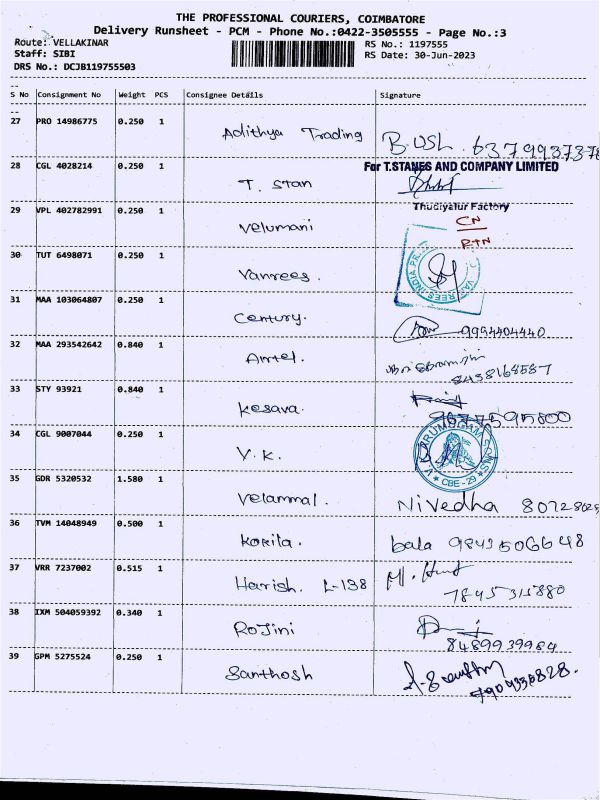 THE PROFESSIONAL COURIERS, COIMBATORE
Delivery Runsheet - PCM - Phone No.:0422-3505555 - Page No.:3
Route: VELLAKINAR RS No.: 1197555
Staff: SIBI RS Date: 30-Jun-2023
DRS No.: DCJB119755503
S No Consignment No Weight PCS Consignee Details Signature
27 PRO 14986775 0.250 1 Adithya Trading
28 CGL 4028214 0.250 1 T. Stan For T.STANES AND COMPANY LIMITED
Thudiyalur Factory
29 VPL 402782991 0.250 1 Velumani CN
RTN
30 TUT 6498071 0.250 1 Vanrees.
31 MAA 103064807 0.250 1 Century. 9994404440
32 MAA 293542642 0.840 1 Airtel. 8438168587
33 STY 93921 0.840 1 Kesava.
34 CGL 9007044 0.250 1 V.K. V. ARUMUGAM SONS
* CBE - 29 *
35 GDR 5320532 1.580 1 Velammal. Nivedha
36 TVM 14048949 0.500 1 Kokila. bala 9843506648
37 VRR 7237002 0.515 1 Harish. L-138 7845315880
38 IXM 504059392 0.340 1 Rojini 8489939984
39 GPM 5275524 0.250 1 Santhosh